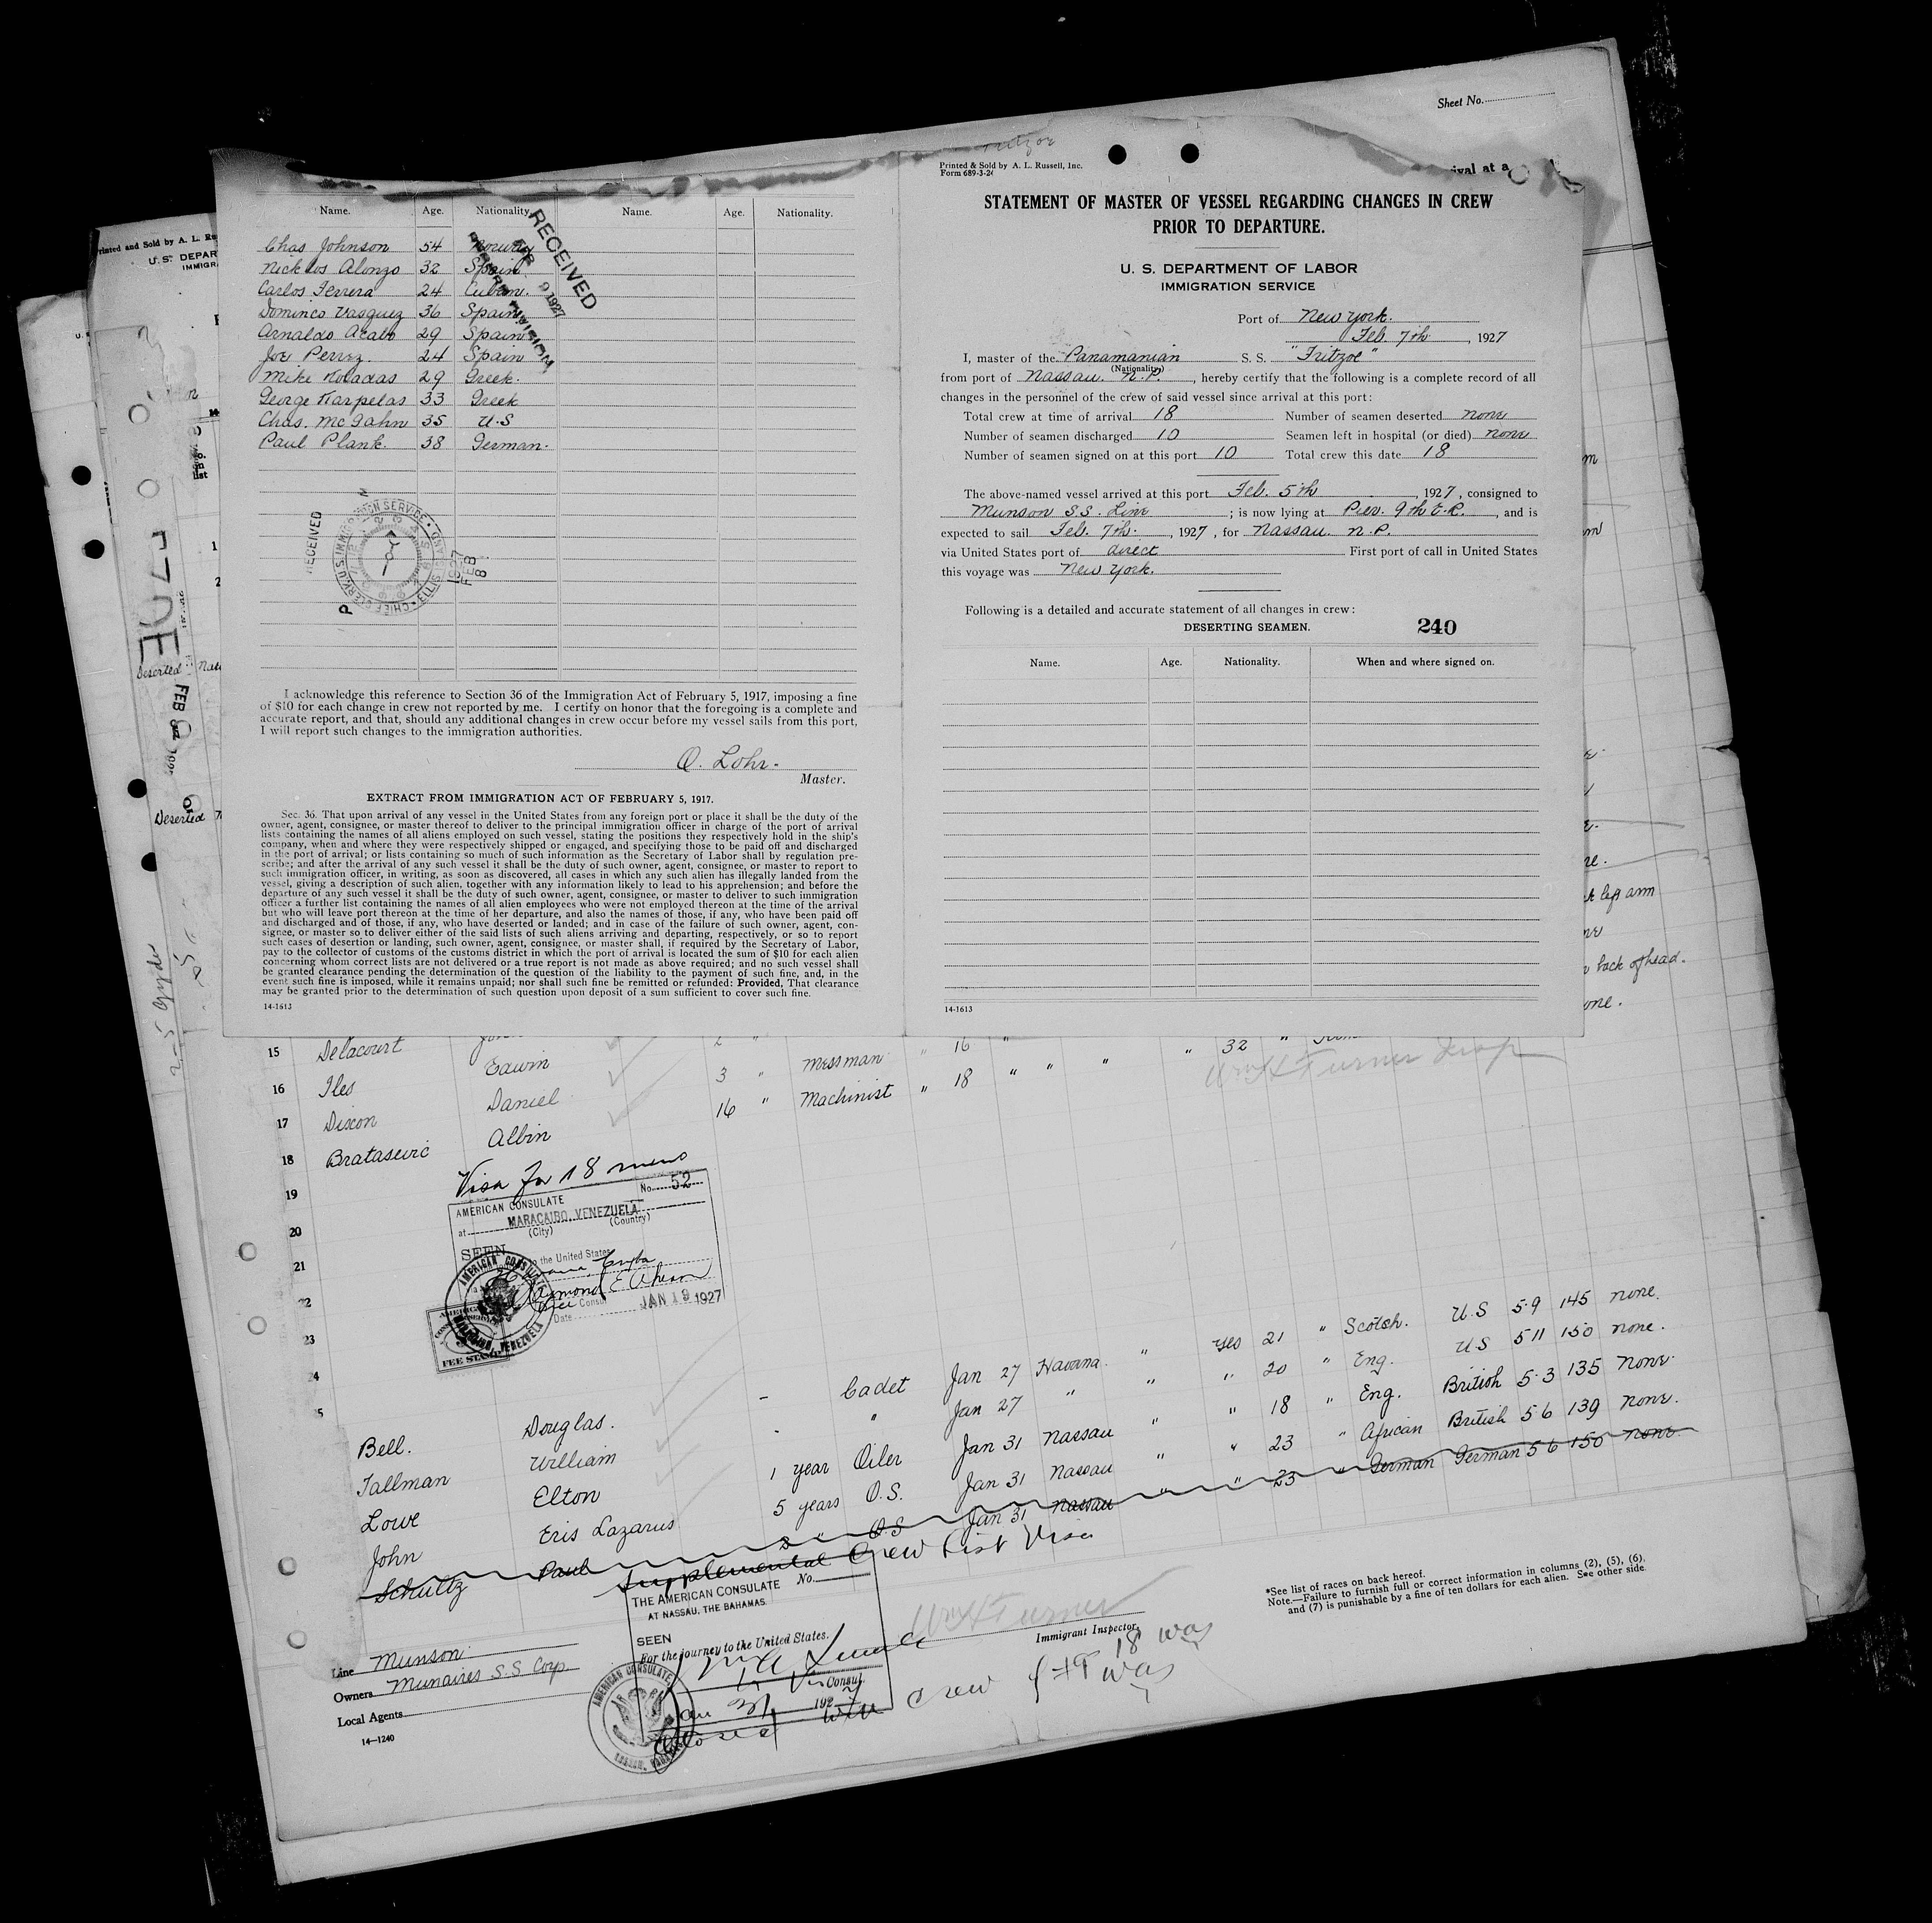 Sheet No.
Printed & Sold by A. L. Russell, Inc.
Form 689-3-2
ival at a
STATEMENT OF MASTER OF VESSEL REGARDING CHANGES IN CREW
PRIOR TO DEPARTURE.
U. S. DEPARTMENT OF LABOR
IMMIGRATION SERVICE
Port of New York.
Feb. 7th, 1927
I, master of the Panamanian S. S. "Fritzoe"
(Nationality)
from port of Nassau. N.P., hereby certify that the following is a complete record of all
changes in the personnel of the crew of said vessel since arrival at this port:
Total crew at time of arrival 18 Number of seamen deserted none
Number of seamen discharged 10 Seamen left in hospital (or died) none
Number of seamen signed on at this port 10 Total crew this date 18
The above-named vessel arrived at this port Feb. 5th, 1927, consigned to
Munson S.S. Line; is now lying at Pier. 9th E.R., and is
expected to sail Feb. 7th, 1927, for Nassau. N.P.
via United States port of direct First port of call in United States
this voyage was New York.
Following is a detailed and accurate statement of all changes in crew:
DESERTING SEAMEN. 240
Name. Age. Nationality. When and where signed on.
14-1613
Name. Age. Nationality. Name. Age. Nationality.
Chas Johnson 54 Norway
Nicklos Alonzo 32 Spain
Carlos Ferrera 24 Cuban.
Dominco Vasquez 36 Spain
Arnaldo 29 Spain
Joe Perrez. 24 Spain
Mike Koladas 29 Greek.
George Karpelas 33 Greek
Chas. McGahn 35 U.S
Paul Plank. 38 German.
RECEIVED
FEB 9 1927
DIVISION
RECEIVED
CHIEF CLERK, U.S. IMMIGRATION SERVICE • ELLIS ISLAND
1927
FEB
8
P M
I acknowledge this reference to Section 36 of the Immigration Act of February 5, 1917, imposing a fine
of $10 for each change in crew not reported by me. I certify on honor that the foregoing is a complete and
accurate report, and that, should any additional changes in crew occur before my vessel sails from this port,
I will report such changes to the immigration authorities.
O. Lohr.
Master.
EXTRACT FROM IMMIGRATION ACT OF FEBRUARY 5, 1917.
Sec. 36. That upon arrival of any vessel in the United States from any foreign port or place it shall be the duty of the
owner, agent, consignee, or master thereof to deliver to the principal immigration officer in charge of the port of arrival
lists containing the names of all aliens employed on such vessel, stating the positions they respectively hold in the ship's
company, when and where they were respectively shipped or engaged, and specifying those to be paid off and discharged
in the port of arrival; or lists containing so much of such information as the Secretary of Labor shall by regulation pre-
scribe; and after the arrival of any such vessel it shall be the duty of such owner, agent, consignee, or master to report to
such immigration officer, in writing, as soon as discovered, all cases in which any such alien has illegally landed from the
vessel, giving a description of such alien, together with any information likely to lead to his apprehension; and before the
departure of any such vessel it shall be the duty of such owner, agent, consignee, or master to deliver to such immigration
officer a further list containing the names of all alien employees who were not employed thereon at the time of the arrival
but who will leave port thereon at the time of her departure, and also the names of those, if any, who have been paid off
and discharged and of those, if any, who have deserted or landed; and in case of the failure of such owner, agent, con-
signee, or master so to deliver either of the said lists of such aliens arriving and departing, respectively, or so to report
such cases of desertion or landing, such owner, agent, consignee, or master shall, if required by the Secretary of Labor,
pay to the collector of customs of the customs district in which the port of arrival is located the sum of $10 for each alien
concerning whom correct lists are not delivered or a true report is not made as above required; and no such vessel shall
be granted clearance pending the determination of the question of the liability to the payment of such fine, and, in the
event such fine is imposed, while it remains unpaid; nor shall such fine be remitted or refunded: Provided, That clearance
may be granted prior to the determination of such question upon deposit of a sum sufficient to cover such fine.
14-1613
Printed and Sold by A. L. Ru
U. S. DEPAR
IMMIGRA
Deserted
FEB 8
Deserted
k left arm
back of head.
one.
15 Delacourt 2 " " 16 " " 32 "
16 Iles Edwin 3 " Messman " 18 " " "
17 Dixon Daniel 16 " Machinist "
18 Bratasevic Albin
Wm H Turner Insp
19
20
21
22
23
24
Visa for 18 mens
AMERICAN CONSULATE No. 52
at MARACAIBO, VENEZUELA
(City) (Country)
SEEN
the United States
Cuba
Vice Consul
Date JAN 19 1927
AMERICAN CONSULATE
MARACAIBO, VENEZUELA
FEE STAMP
Bell. Douglas. - Cadet Jan 27 Havana. " Yes 21 " Scotch. U.S 5.9 145 none.
Tallman William - " Jan 27 " " " 20 " Eng. U.S 5 11 150 none.
Lowe Elton 1 year Oiler Jan 31 Nassau " " 18 " Eng. British 5.3 135 none.
John Eris Lazarus 5 years O.S. Jan 31 Nassau " " 23 " African British 5 6 139 none.
Schultz Paul O.S Jan 31 Nassau " " 23 " German German 5 6 150 none
Supplemental Crew List Visa
THE AMERICAN CONSULATE No.
AT NASSAU, THE BAHAMAS.
SEEN
For the journey to the United States.
Vice Consul
Jan 31 1927
AMERICAN CONSULATE
NASSAU, BAHAMAS
Closed with crew of 18 was
Wm H Turner
Immigrant Inspector.
*See list of races on back hereof.
Note.—Failure to furnish full or correct information in columns (2), (5), (6),
and (7) is punishable by a fine of ten dollars for each alien. See other side.
Line Munson
Owners Munaires S.S Corp.
Local Agents
14—1240